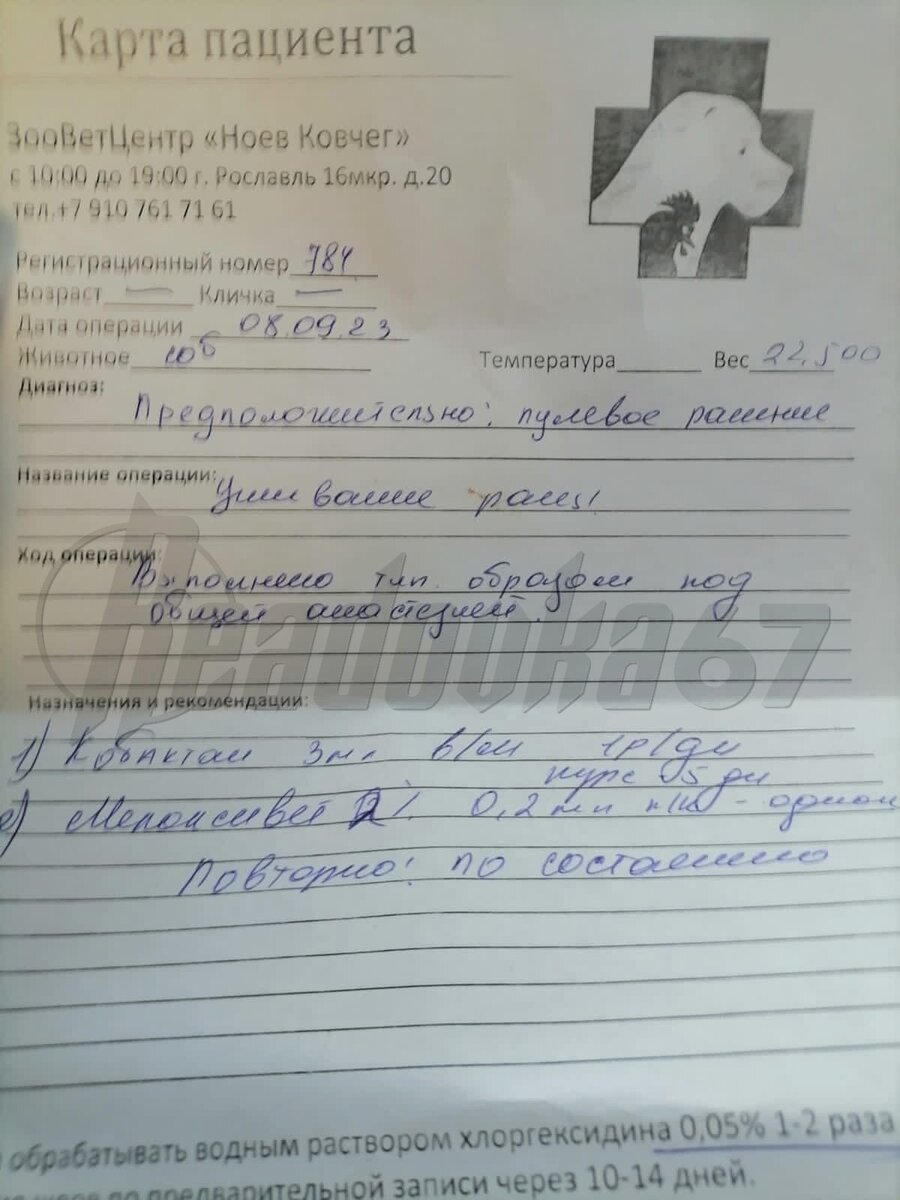 Карта пациента
ЗооВетЦентр «Ноев Ковчег»
с 10:00 до 19:00 г. Рославль 16мкр. д.20
тел.+7 910 761 71 61
Регистрационный номер 784
Возраст — Кличка —
Дата операции 08.09.23
Животное соб Температура Вес 22,500
Диагноз:
Предположительно: пулевое ранение
Название операции:
Ушивание раны
Ход операции:
Выполнено тип. образом под
общей анастезией.
Readovka67
Назначения и рекомендации:
1) Кобактан 3мл в/м 1р/дн
курс 5 дн
2) Мелоксивет 2%. 0,2 мл
Повторно: по состоянию
обрабатывать водным раствором хлоргексидина 0,05% 1-2 раза
по предварительной записи через 10-14 дней.